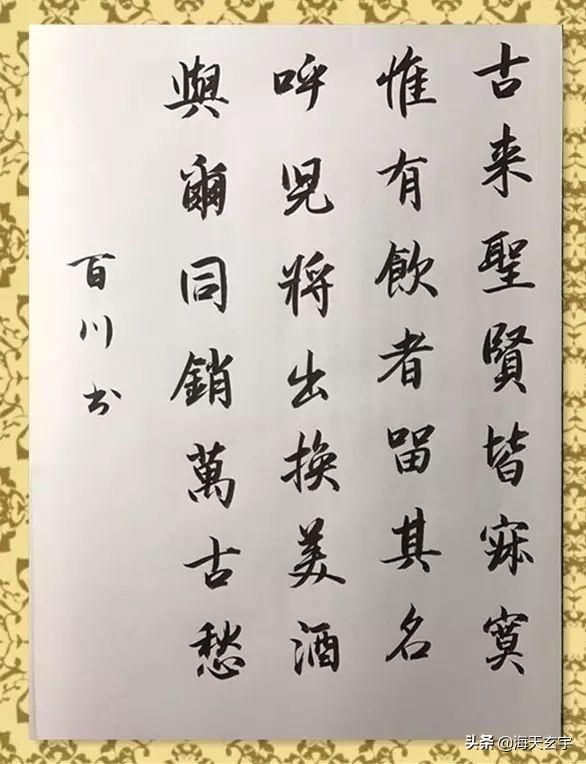 古来聖賢皆寂寞
惟有飲者留其名
呼児将出换美酒
與爾同銷萬古愁
百川书
头条 @海天玄宇